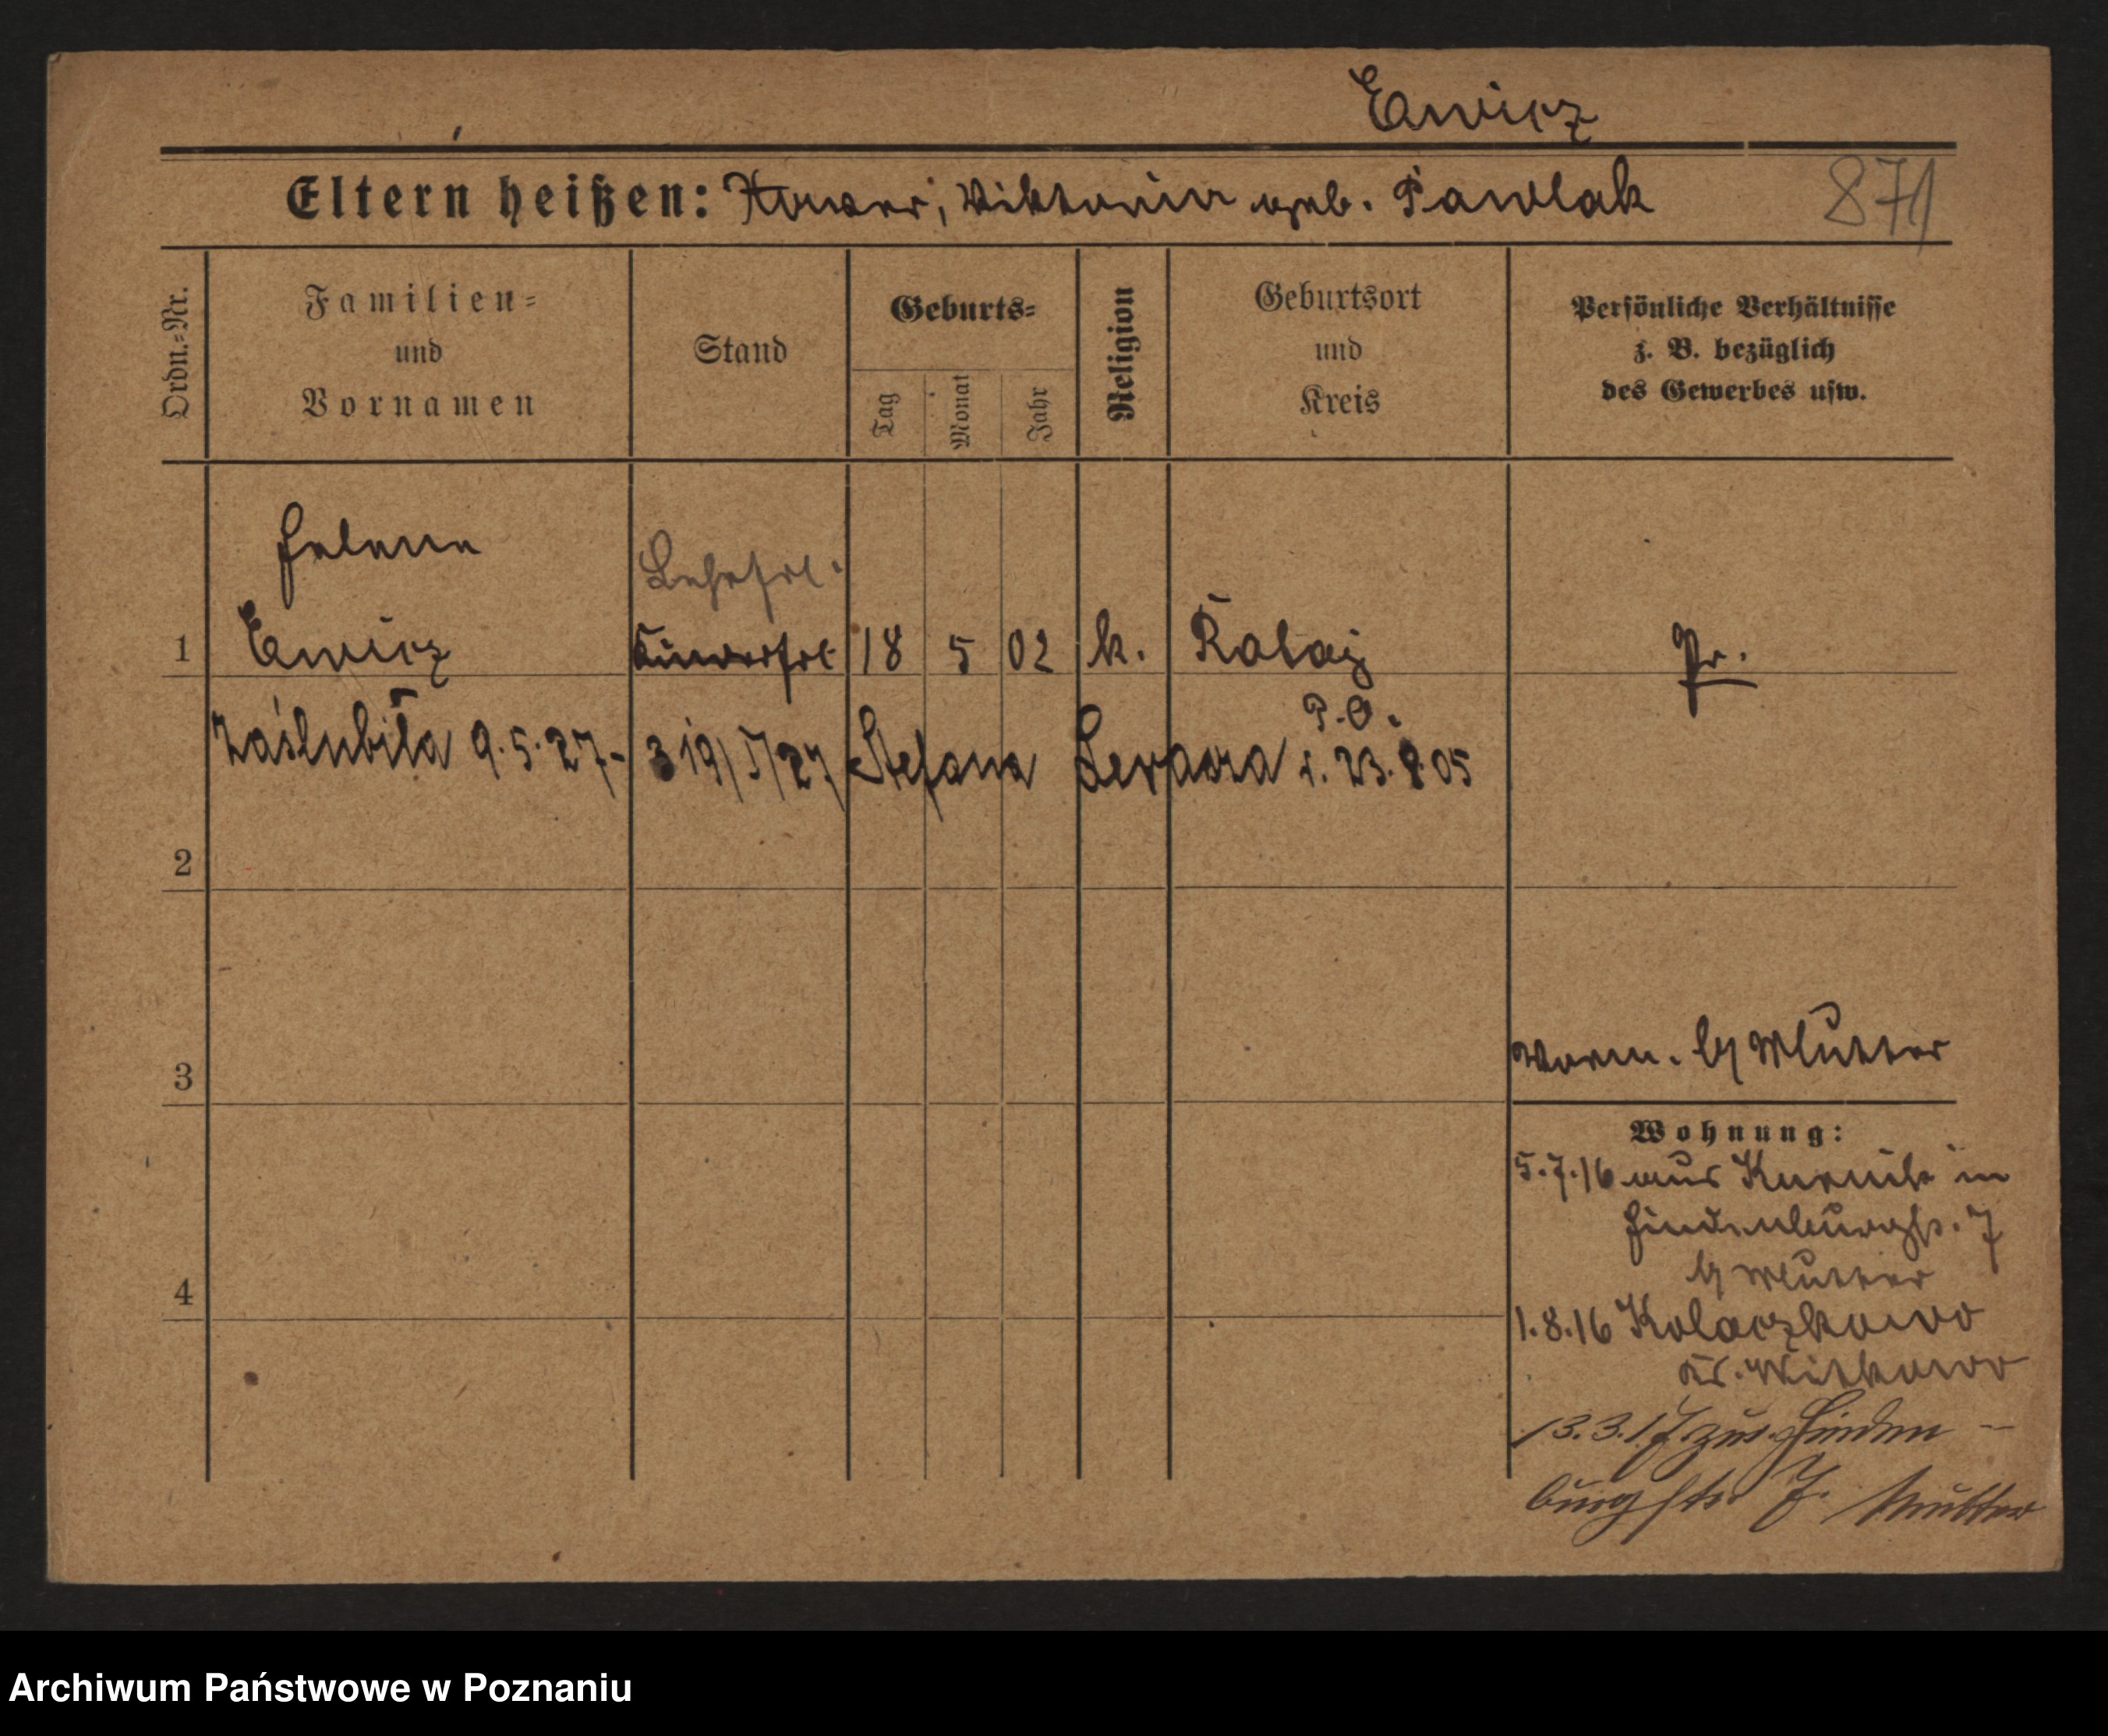 Ewicz
Eltern heißen: Xaver, Viktoria geb. Pawlak
871
Ordn.-Nr.
Familien-
und
Vornamen
Stand
Geburts-
Tag
Monat
Jahr
Religion
Geburtsort
und
Kreis
Persönliche Verhältnisse
z. B. bezüglich
des Gewerbes usw.
Helene
1 Ewicz 18 5 02 k. Pr.
P. O.
zaślubiła 9.5.27- 319/V/27 Stefana 05
2
Worm. b/ Mutter
3
Wohnung:
5.7.16 aus Kurnik in
Hindenburgstr. 7
b/ Mutter
4
1.8.16 Kolaczkowo
Kr. Witkowo
13.3.17 zur. Hinden-
burgstr 7. Mutter
Archiwum Państwowe w Poznaniu